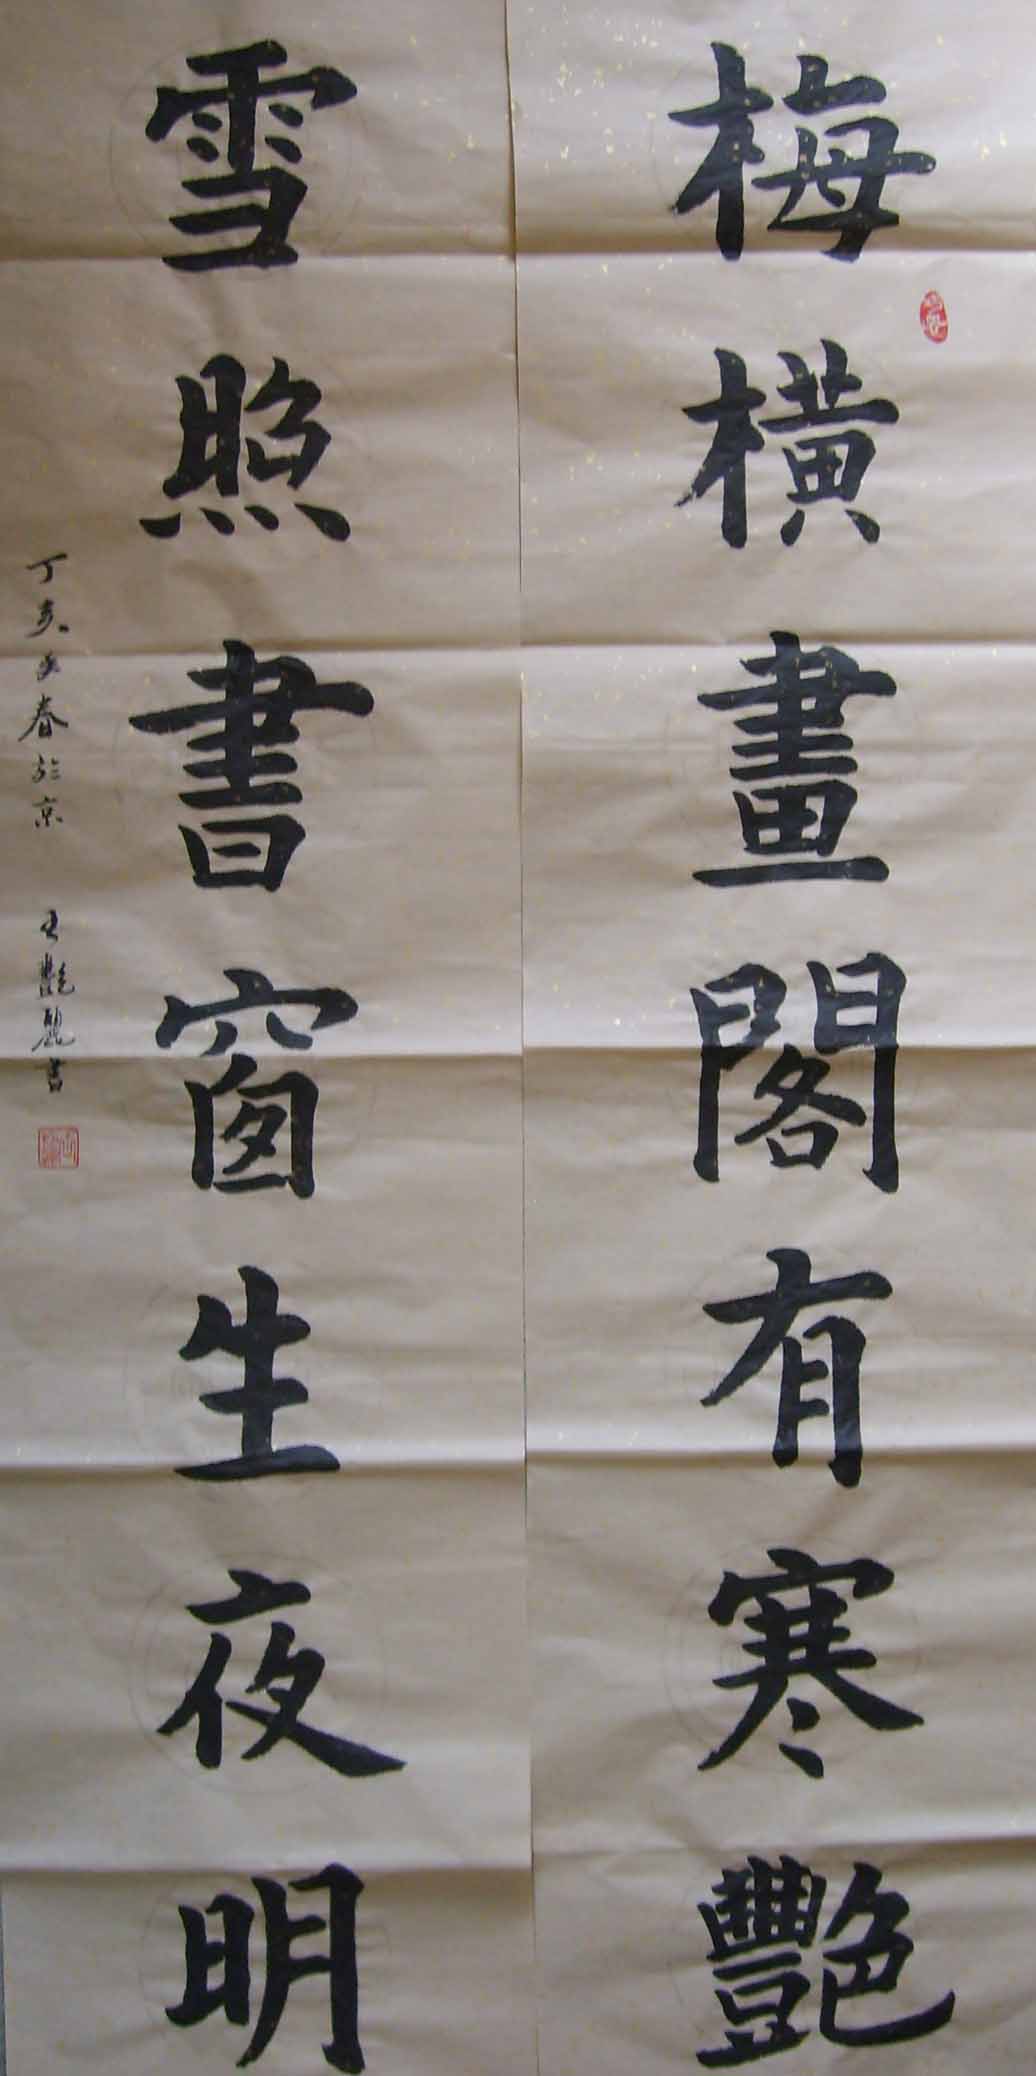 梅橫畫閣有寒艷
雪照書窗生夜明
丁亥年春於京
王艷麗書